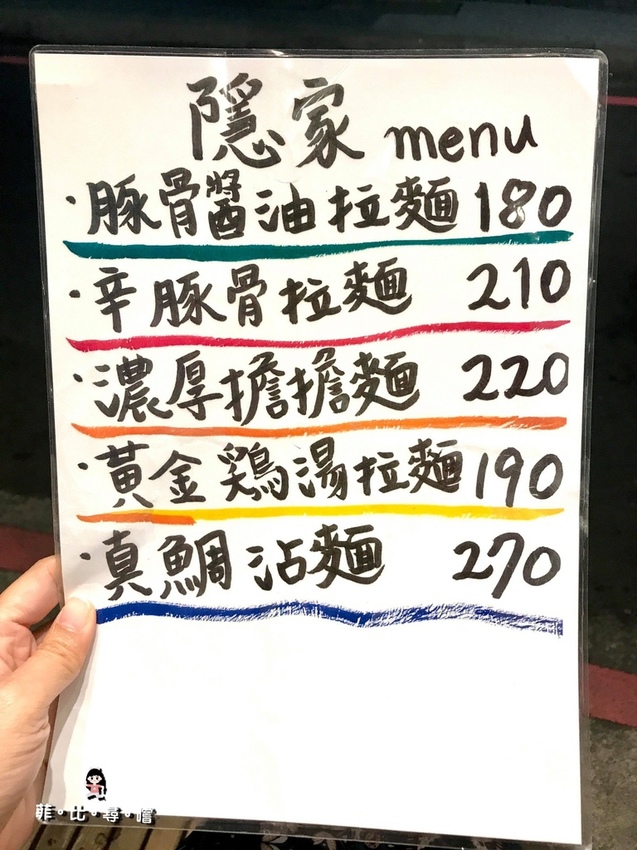 隱家 menu
·豚骨醬油拉麵 180
·辛豚骨拉麵 210
·濃厚擔擔麵 220
·黃金鷄湯拉麵 190
·真鯛沾麵 270
菲·比·尋·嚐